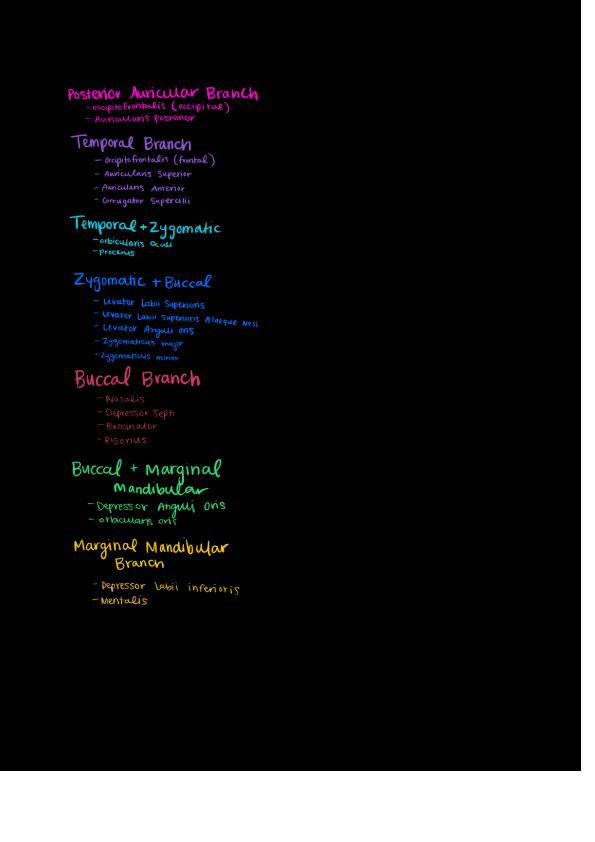 Posterior Auricular Branch
- occipitofrontalis (occipital)
- Auricularis posterior
Temporal Branch
- occipitofrontalis (frontal)
- Auricularis Superior
- Auricularis Anterior
- Corrugator Supercilii
Temporal + Zygomatic
- orbicularis oculi
- procerus
Zygomatic + Buccal
- Levator Labii Superioris
- Levator Labii Superioris Alaeque Nasi
- Levator Anguli oris
- Zygomaticus major
- Zygomaticus minor
Buccal Branch
- Nasalis
- Depressor Septi
- Buccinator
- Risorius
Buccal + Marginal
Mandibular
- Depressor Anguli Oris
- orbicularis oris
Marginal Mandibular
Branch
- Depressor labii inferioris
- Mentalis